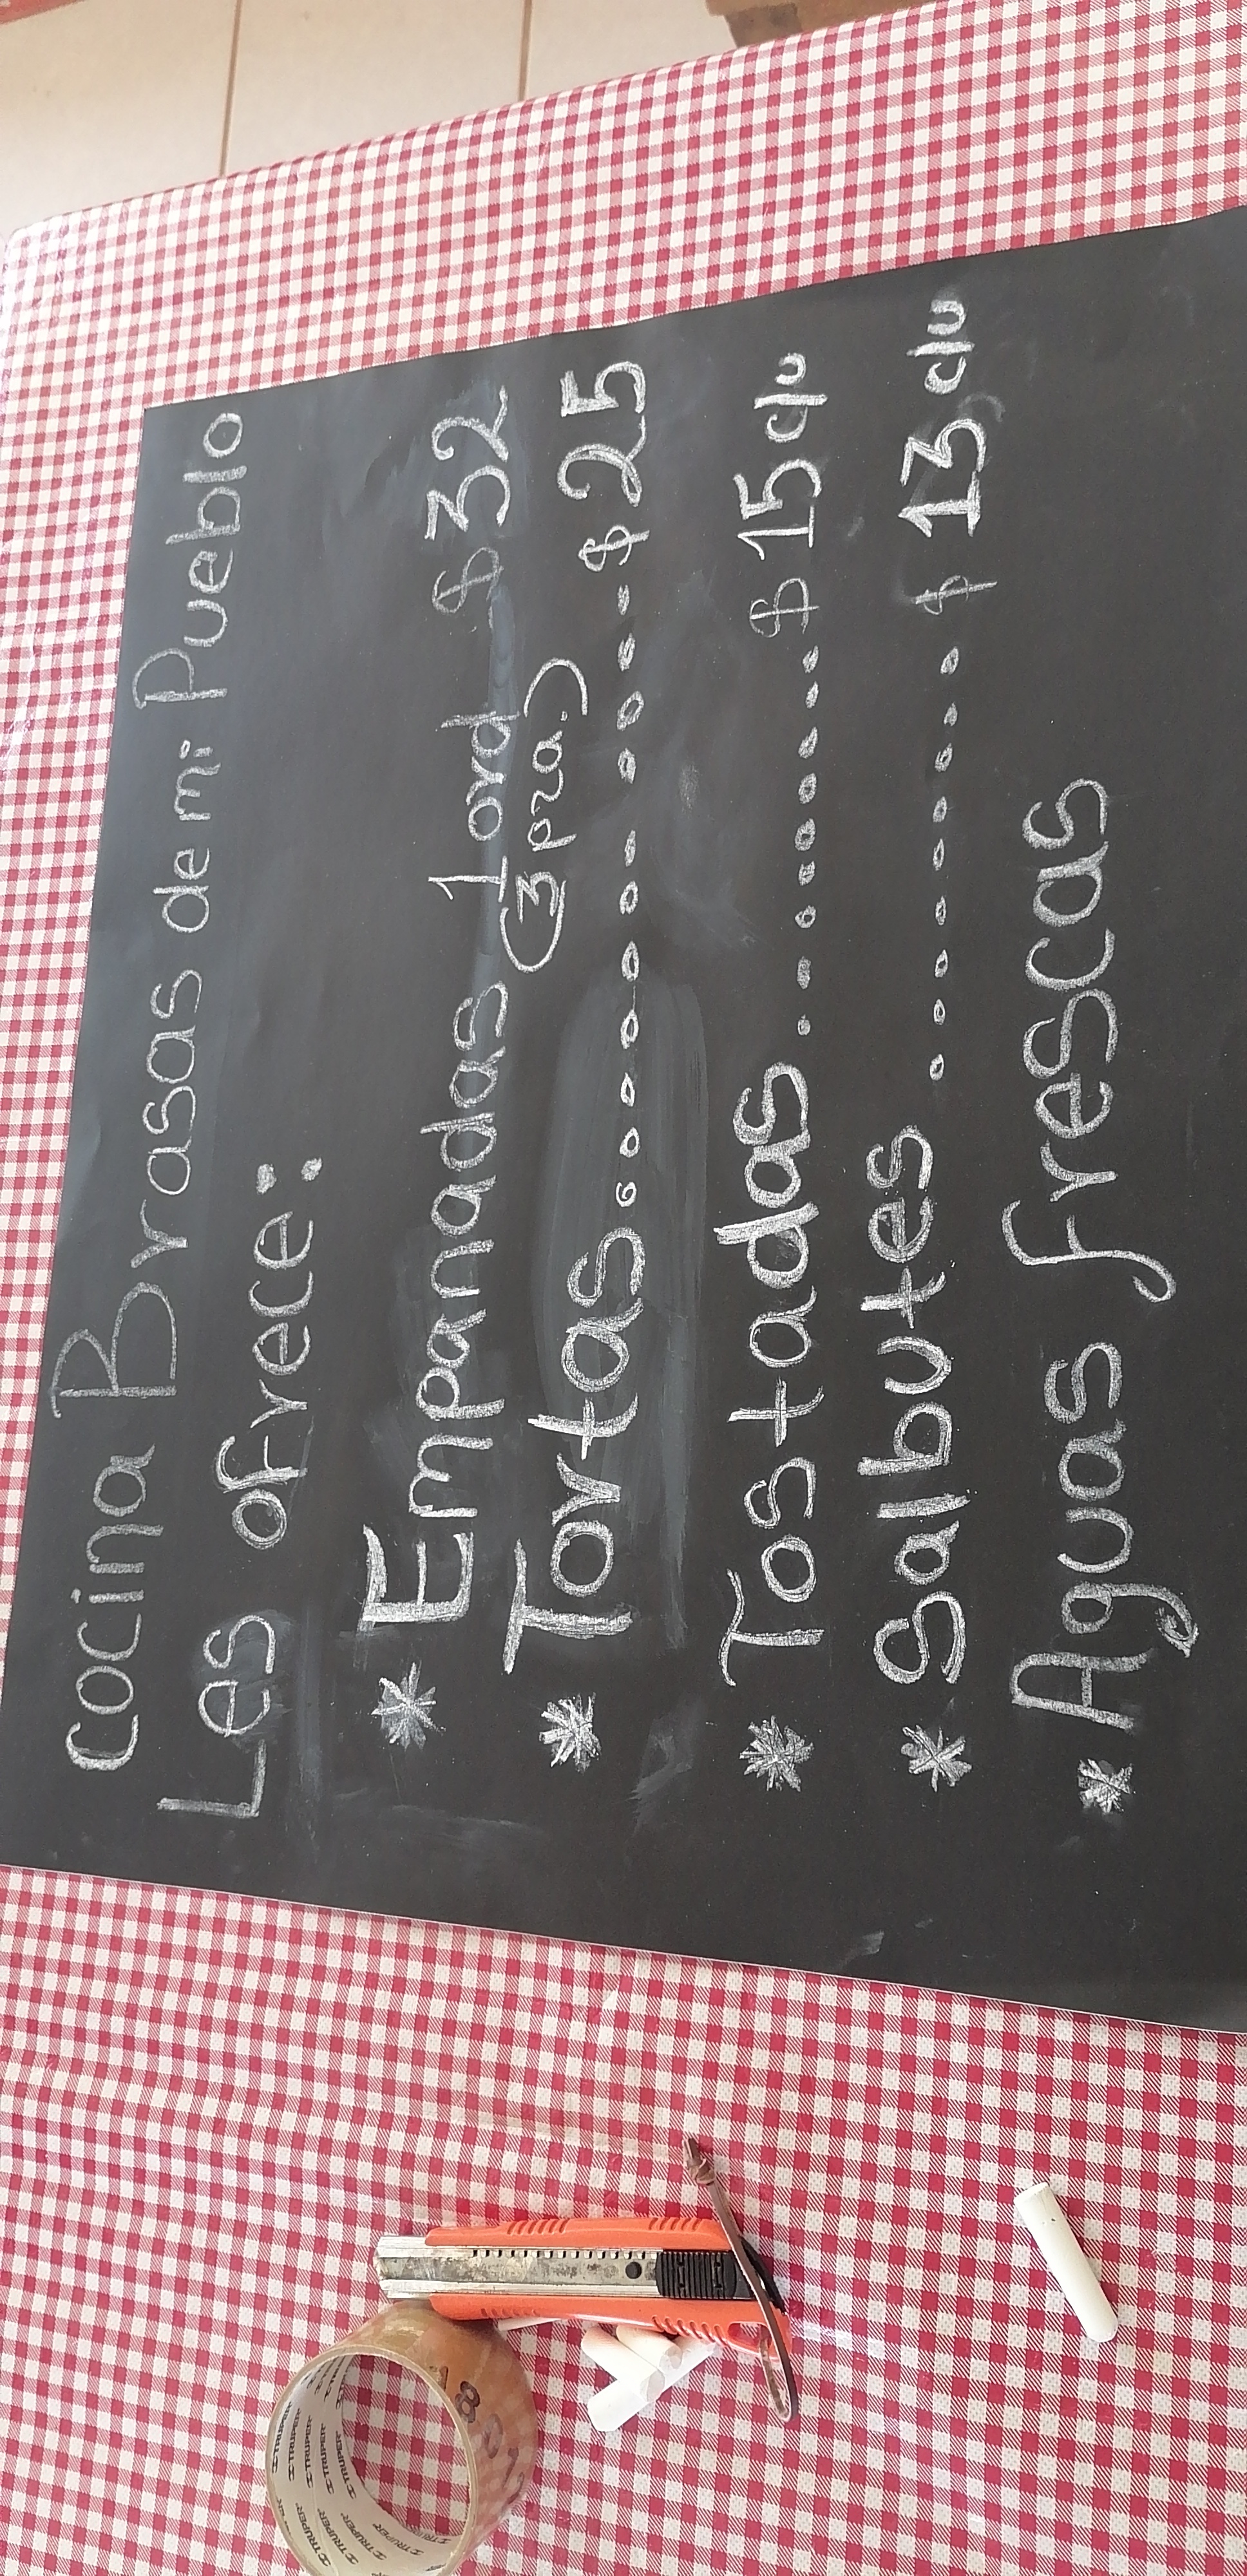 cocina Brasas de mi Pueblo
Les ofrece:
* Empanadas 1 ord $ 32
(3 pza.)
* Tortas ............ $ 25
* Tostadas ........... $ 15 c/u
* Salbutes ......... $ 13 c/u
* Aguas frescas
TRUPER
TRUPER
TRUPER
TRUPER
TRUPER
TRUPER
TRUPER
TRUPER